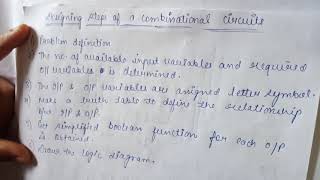 Designing steps of a combinational circuits
1) Problem definition
2) The no. of available input variables and required
o/p variables is determined.
3) The I/P & O/P variables are assigned letter symbol.
4) Make a truth table to define the relationship
b/w I/P & O/P.
5) Get simplified boolean function for each O/P
is obtained.
6) Draw the logic diagram.